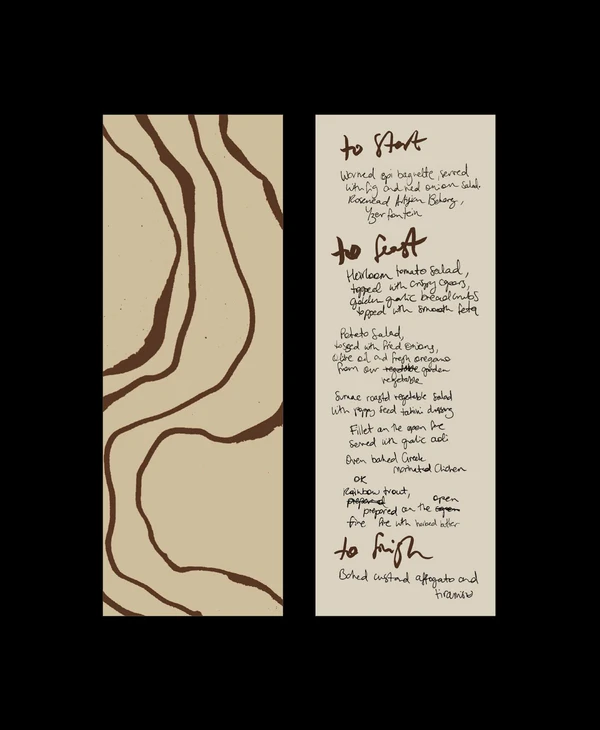 to Start
Warmed epi baguette, served
with fig and red onion salad.
Rosenead Artisan Bakery,
Yzerfontein
to feast
Heirloom tomato salad,
topped with crispy capers,
golden garlic breadcrumbs
topped with smooth feta
Potato Salad,
tossed with fried onions,
olive oil and fresh oregano
from our garden
vegetable
Sumac roasted vegetable salad
with poppy seed tahini dressing
Fillet on the open fire
served with garlic aioli
Oven baked Greek
marinated Chicken
OR
Rainbow trout,
prepared
open
prepared on the
fire with herbed butter
to finish
Baked custard affogato and
tiramisu